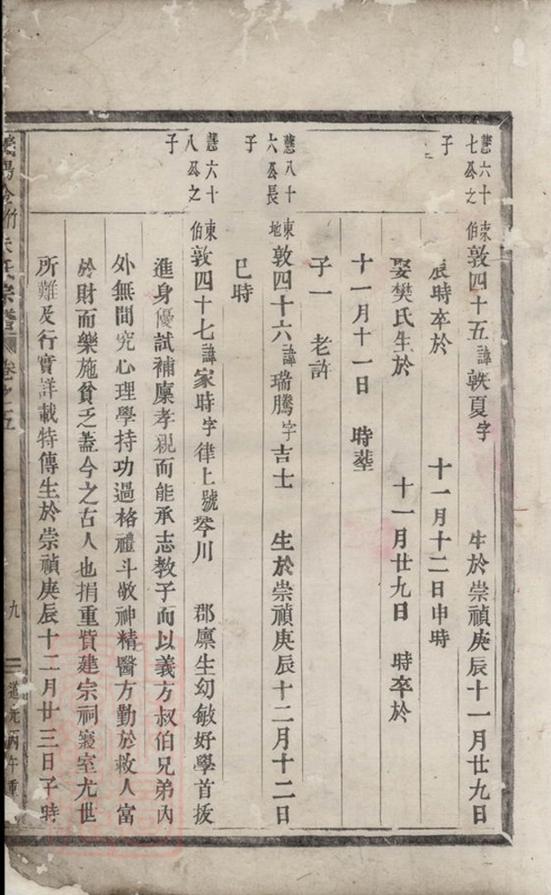 慧六十七公之子
東伯敦四十五諱軼夏字 生於崇禎庚辰十一月廿九日
辰時卒於 十一月十二日申時
娶樊氏生於 十一月廿九日 時卒於
十一月十一日 時塟
子一 老許
慧八十六公長子
東地敦四十六諱瑞騰字吉士 生於崇禎庚辰十二月十二日
巳時
慧六十八公之子
東伯敦四十七諱家時字律上號琴川 郡廩生幼敏好學首拔
進身優試補廩孝親而能承志教子而以義方叔伯兄弟內
外無間究心理學持功過格禮斗敬神精醫方勤於救人富
於財而樂施貧乏葢今之古人也捐重貲建宗祠寢室尤世
所難及行實詳載特傳生於崇禎庚辰十二月廿三日子時
宗譜 卷之五 九 道光丙午重